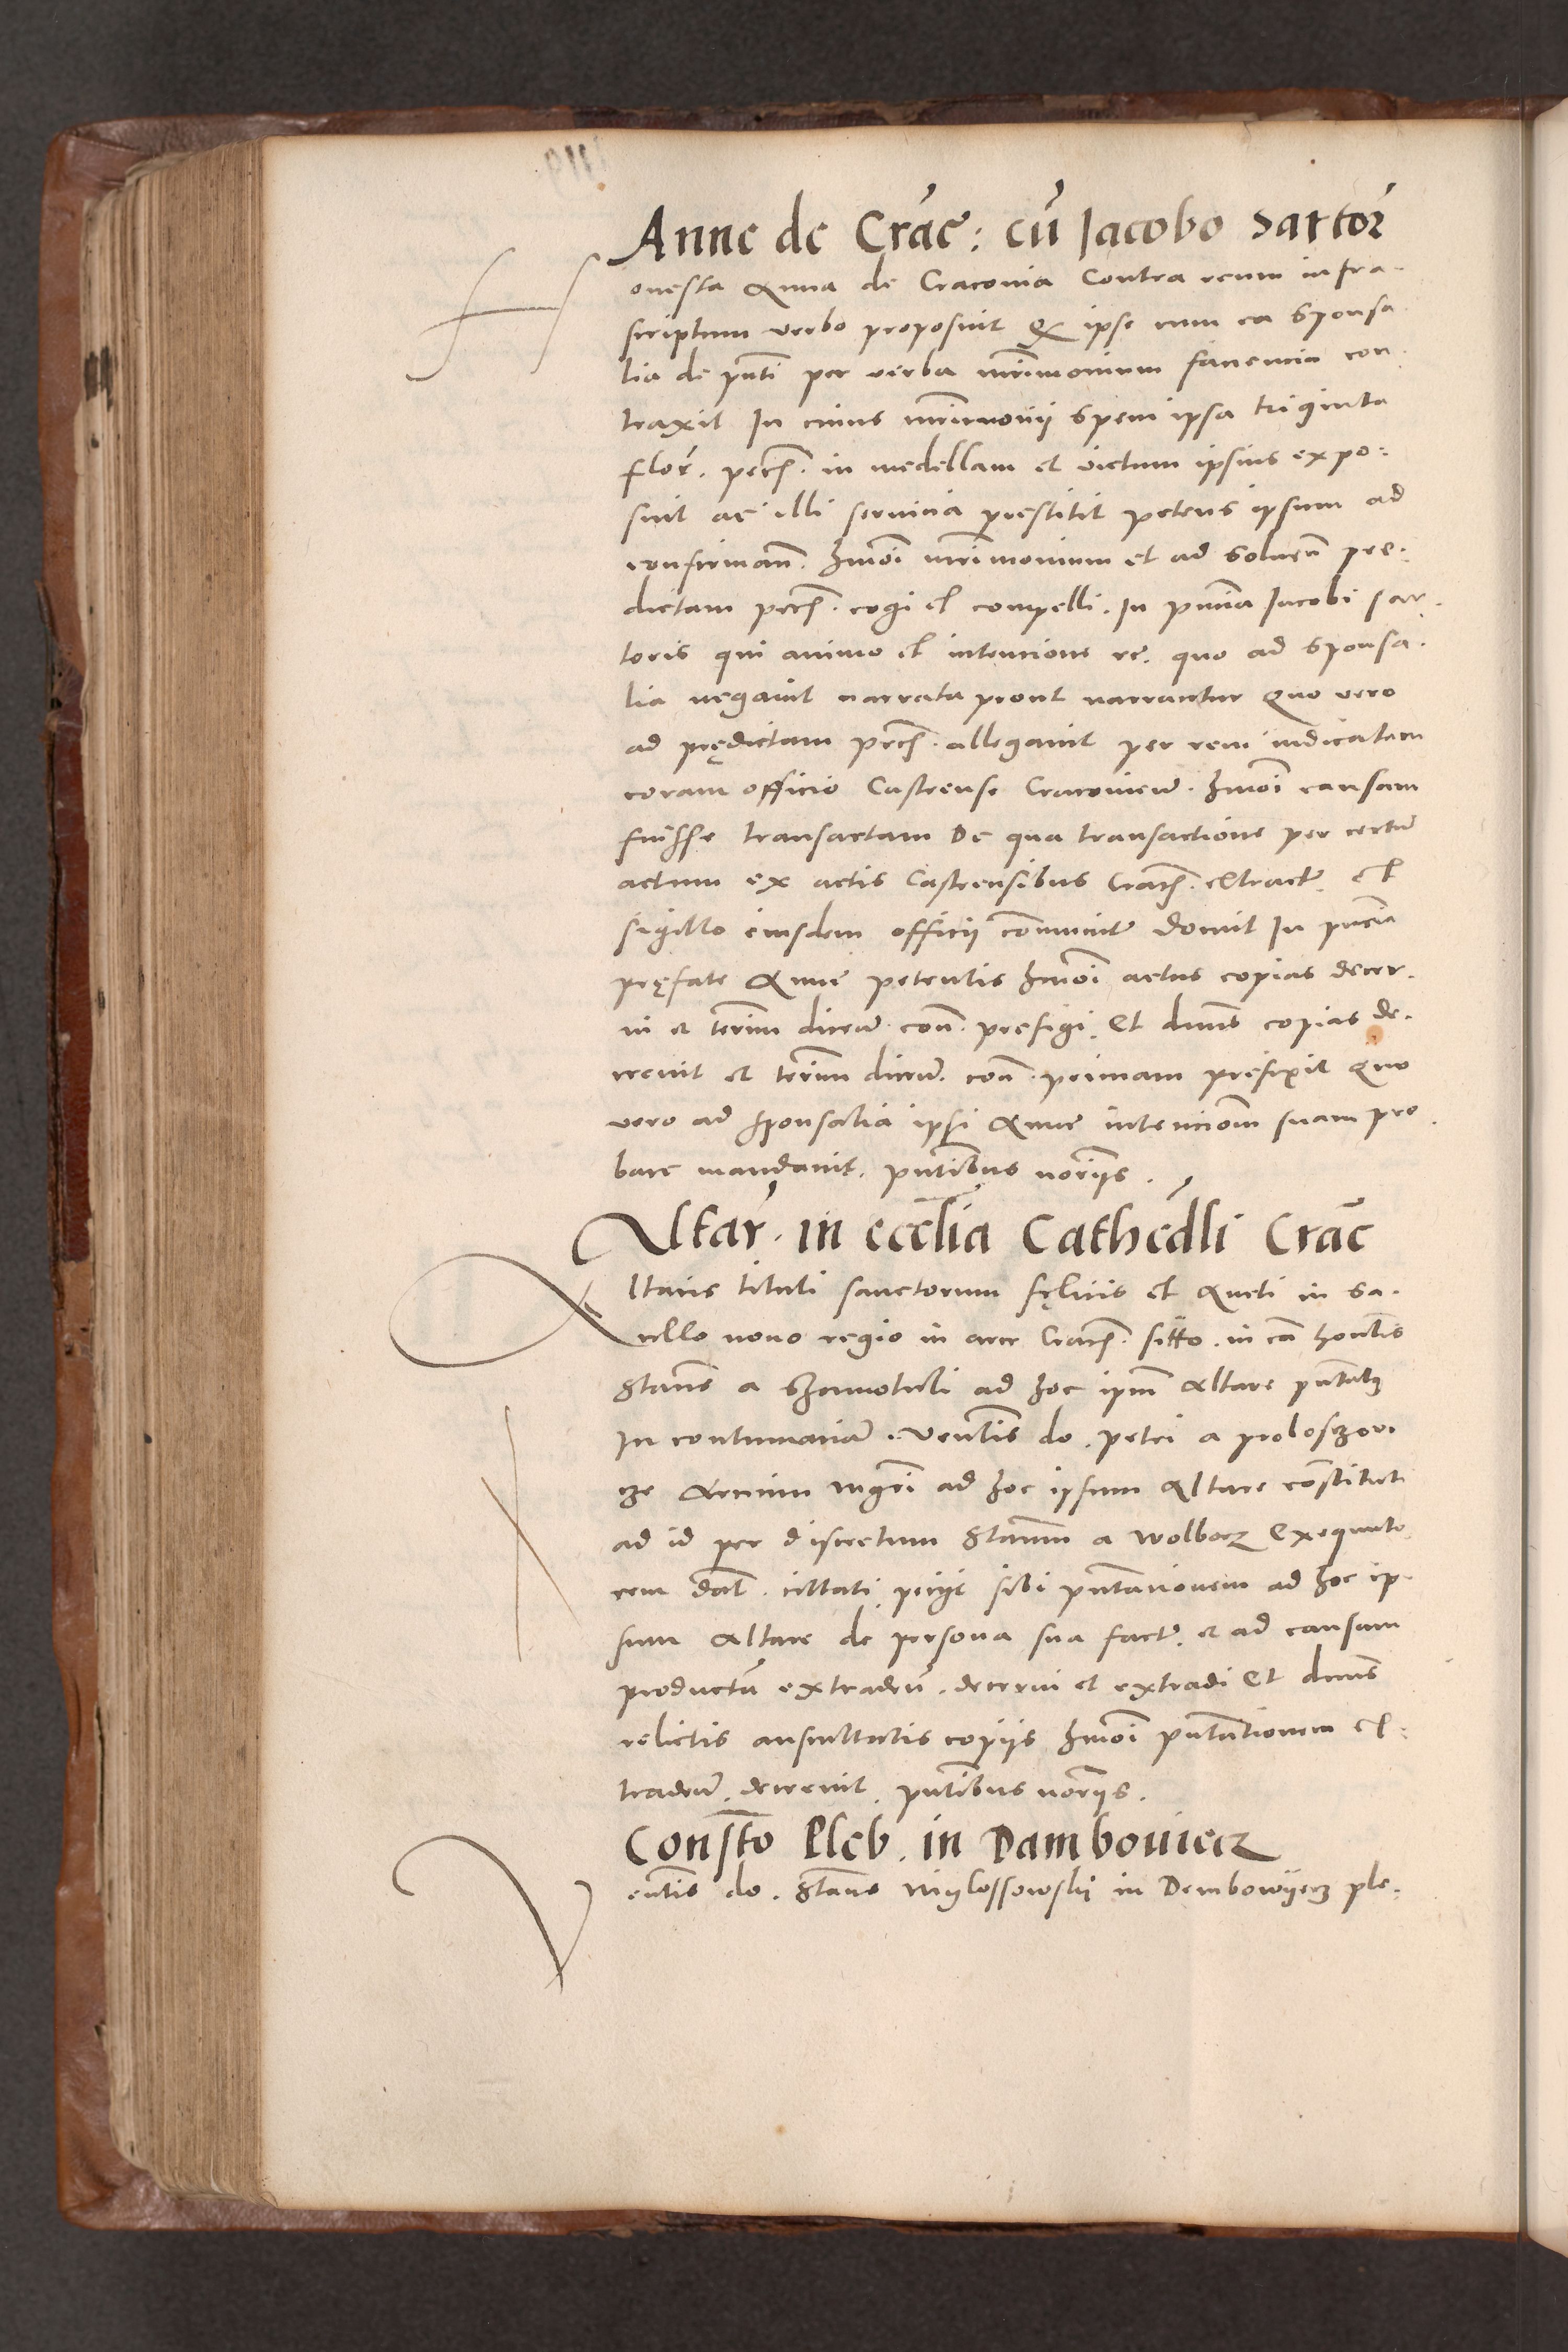 Anne de Crac: cu Jacobo Sartor
Honesta Anna de Cracovia Contra reum infra
scriptum verbo proposuit Q ipse cum ea Sponsa
lia de pnti per verba mrimonium facencia con
traxit In cuius mrimonij Spem ipsa triginta
flor. pecu. in medellam et victum ipsius expo:
suit ac illi servicia prestitit petens ipsum ad
confirman. hmoi mrimonium et ad Solven pre:
dictam pecu. cogi et compelli. In pncia Jacobi Sar
toris qui animo et intencione rc. quo ad Sponsa.
lia negavit narrata prout narrantur Quo vero
ad prędictam pecu. allegavit per rem iudicatam
coram officio Castrense Cracovien. hmoi causam
fuisse transactam De qua transactione per certu
actum ex actis Castrensibus Crac. extractu et
sigillo eiusdem officij communitu docuit In pncia
pręfate Anne petentis hmoi actus copias decer.
ni et terim dicen. con. prefigi. Et dnus copias de.
crevit et terim dicen. con. primam prefixit Quo
vero ad sponsalia ipsi Anne intenciom suam pro
bare mandavit. pntibus norijs.
Altar. in ecclia Cathedli Crac
Altaris tituli sanctorum fęlicis et Aucti in Sa.
cello novo regio in arce Crac. sitto. in ca honlis
Stans a ad hoc ipm Altare pntatus
In contumacia Venlis do. petri a
cze ad hoc ipsum Altare constituti
ad id per discretum Stanm a Wolborz Exequuto
rem dat. cittati peciit sibi pntacionem ad hoc ip.
sum Altare de persona sua factu. et ad causam
productu extraden. decerni et extradi Et dnus
relictis auscultatis copijs hmoi pntationem ex
traden. decrevit. pntibus norijs.
Consto Pleb. in Dambouiecz
Venlis do. Stans Mylossowskij in Dembowijecz ple.